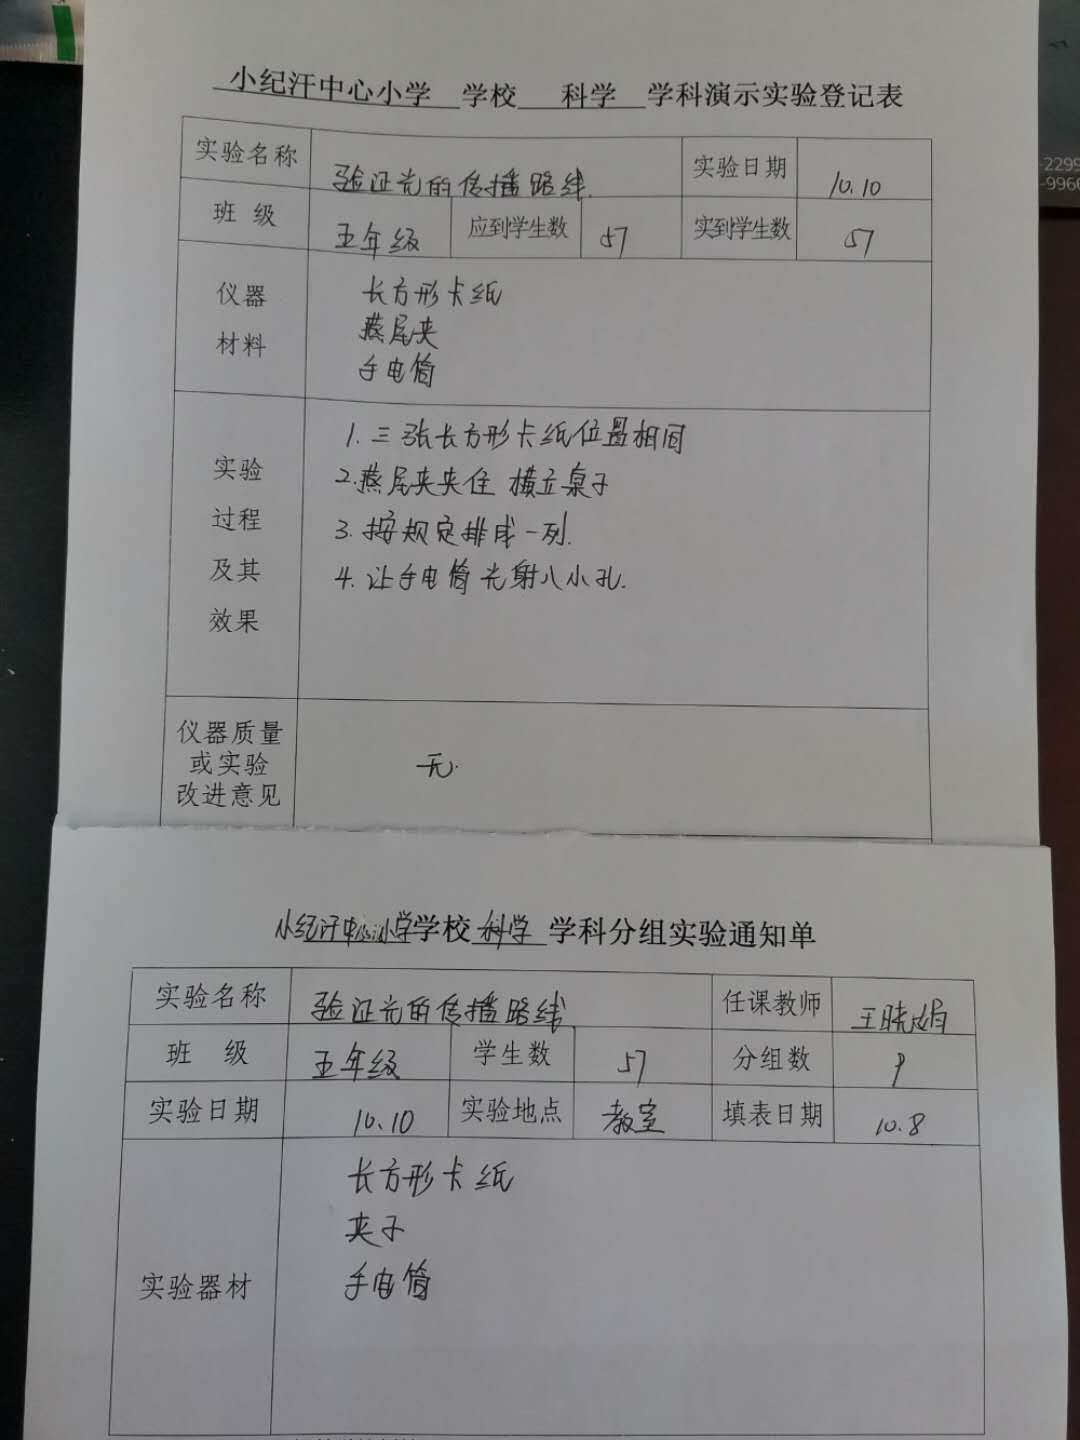 -2299
-9960
小纪汗中心小学 学校 科学 学科演示实验登记表
实验名称 验证光的传播路线. 实验日期 10.10
班 级 五年级 应到学生数 57 实到学生数 57
仪器
材料
长方形卡纸
燕尾夹
手电筒
实验
过程
及其
效果
1. 三张长方形卡纸位置相同
2.燕尾夹夹住 横立桌子
3. 按规定排成一列.
4. 让手电筒光射入小孔.
仪器质量
或实验
改进意见
无.
小纪汗中心小学学校 科学 学科分组实验通知单
实验名称 验证光的传播路线 任课教师 王晓娟
班 级 五年级 学生数 57 分组数 9
实验日期 10.10 实验地点 教室 填表日期 10.8
实验器材
长方形卡纸
夹子
手电筒